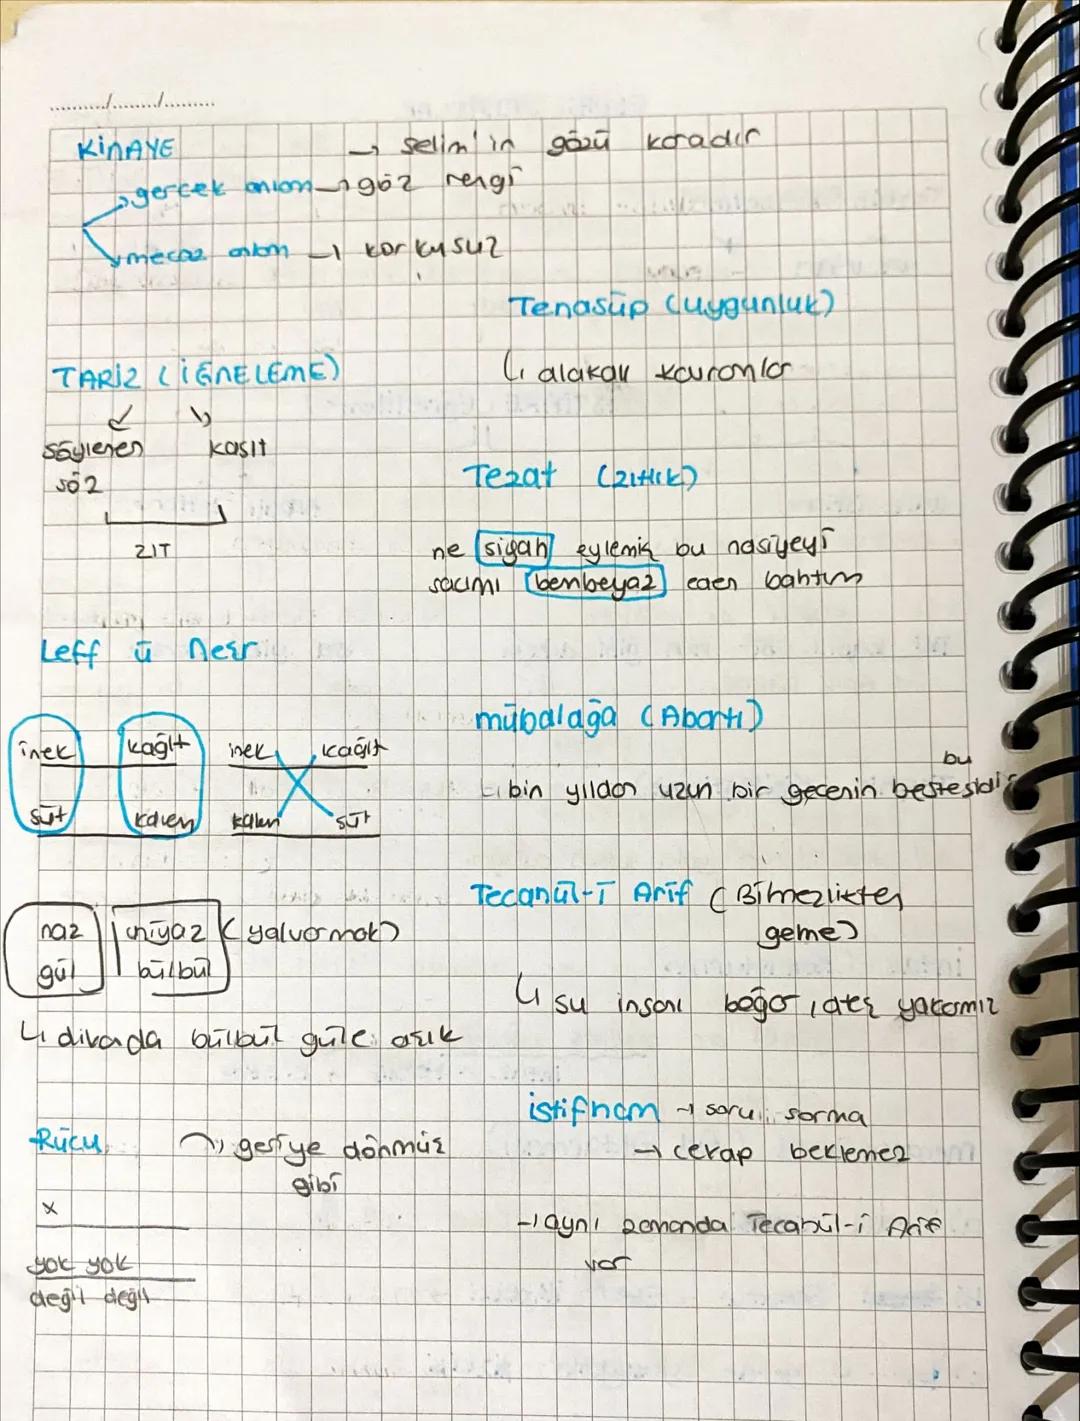 KİNAYE → selim'in gözü karadır
gerçek anlam → göz rengi
mecaz anlam → korkusuz
Tenasüp (uygunluk)
↳ alakalı kavramlar
TARİZ (İĞNELEME)
söylenen kasıt
söz
ZIT
Tezat (zıtlık)
ne siyah eylemiş bu nasiyeyi
saçımı bembeyaz eden bahtım
Leff ü neşr
inek kağıt inek kağıt
süt kalem kalem süt
mübalağa (Abartı)
bu
↳ bin yıldan uzun bir gecenin bestesidir
naz niyaz (yalvarmak)
gül bülbül
↳ divanda bülbül güle aşık
Tecahül-i Arif (Bilmezlikten
geme)
↳ su insanı boğar, ateş yakarmış
istifham → soru sorma
→ cevap beklemez
→ aynı zamanda Tecahül-i Arif
var
Rücu → geriye dönmüş
gibi
x
yok yok
değil değil